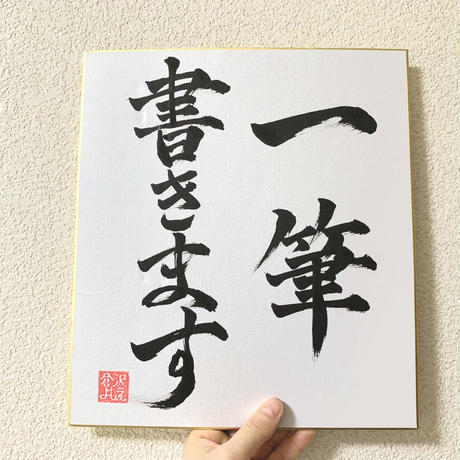 一筆
書きます